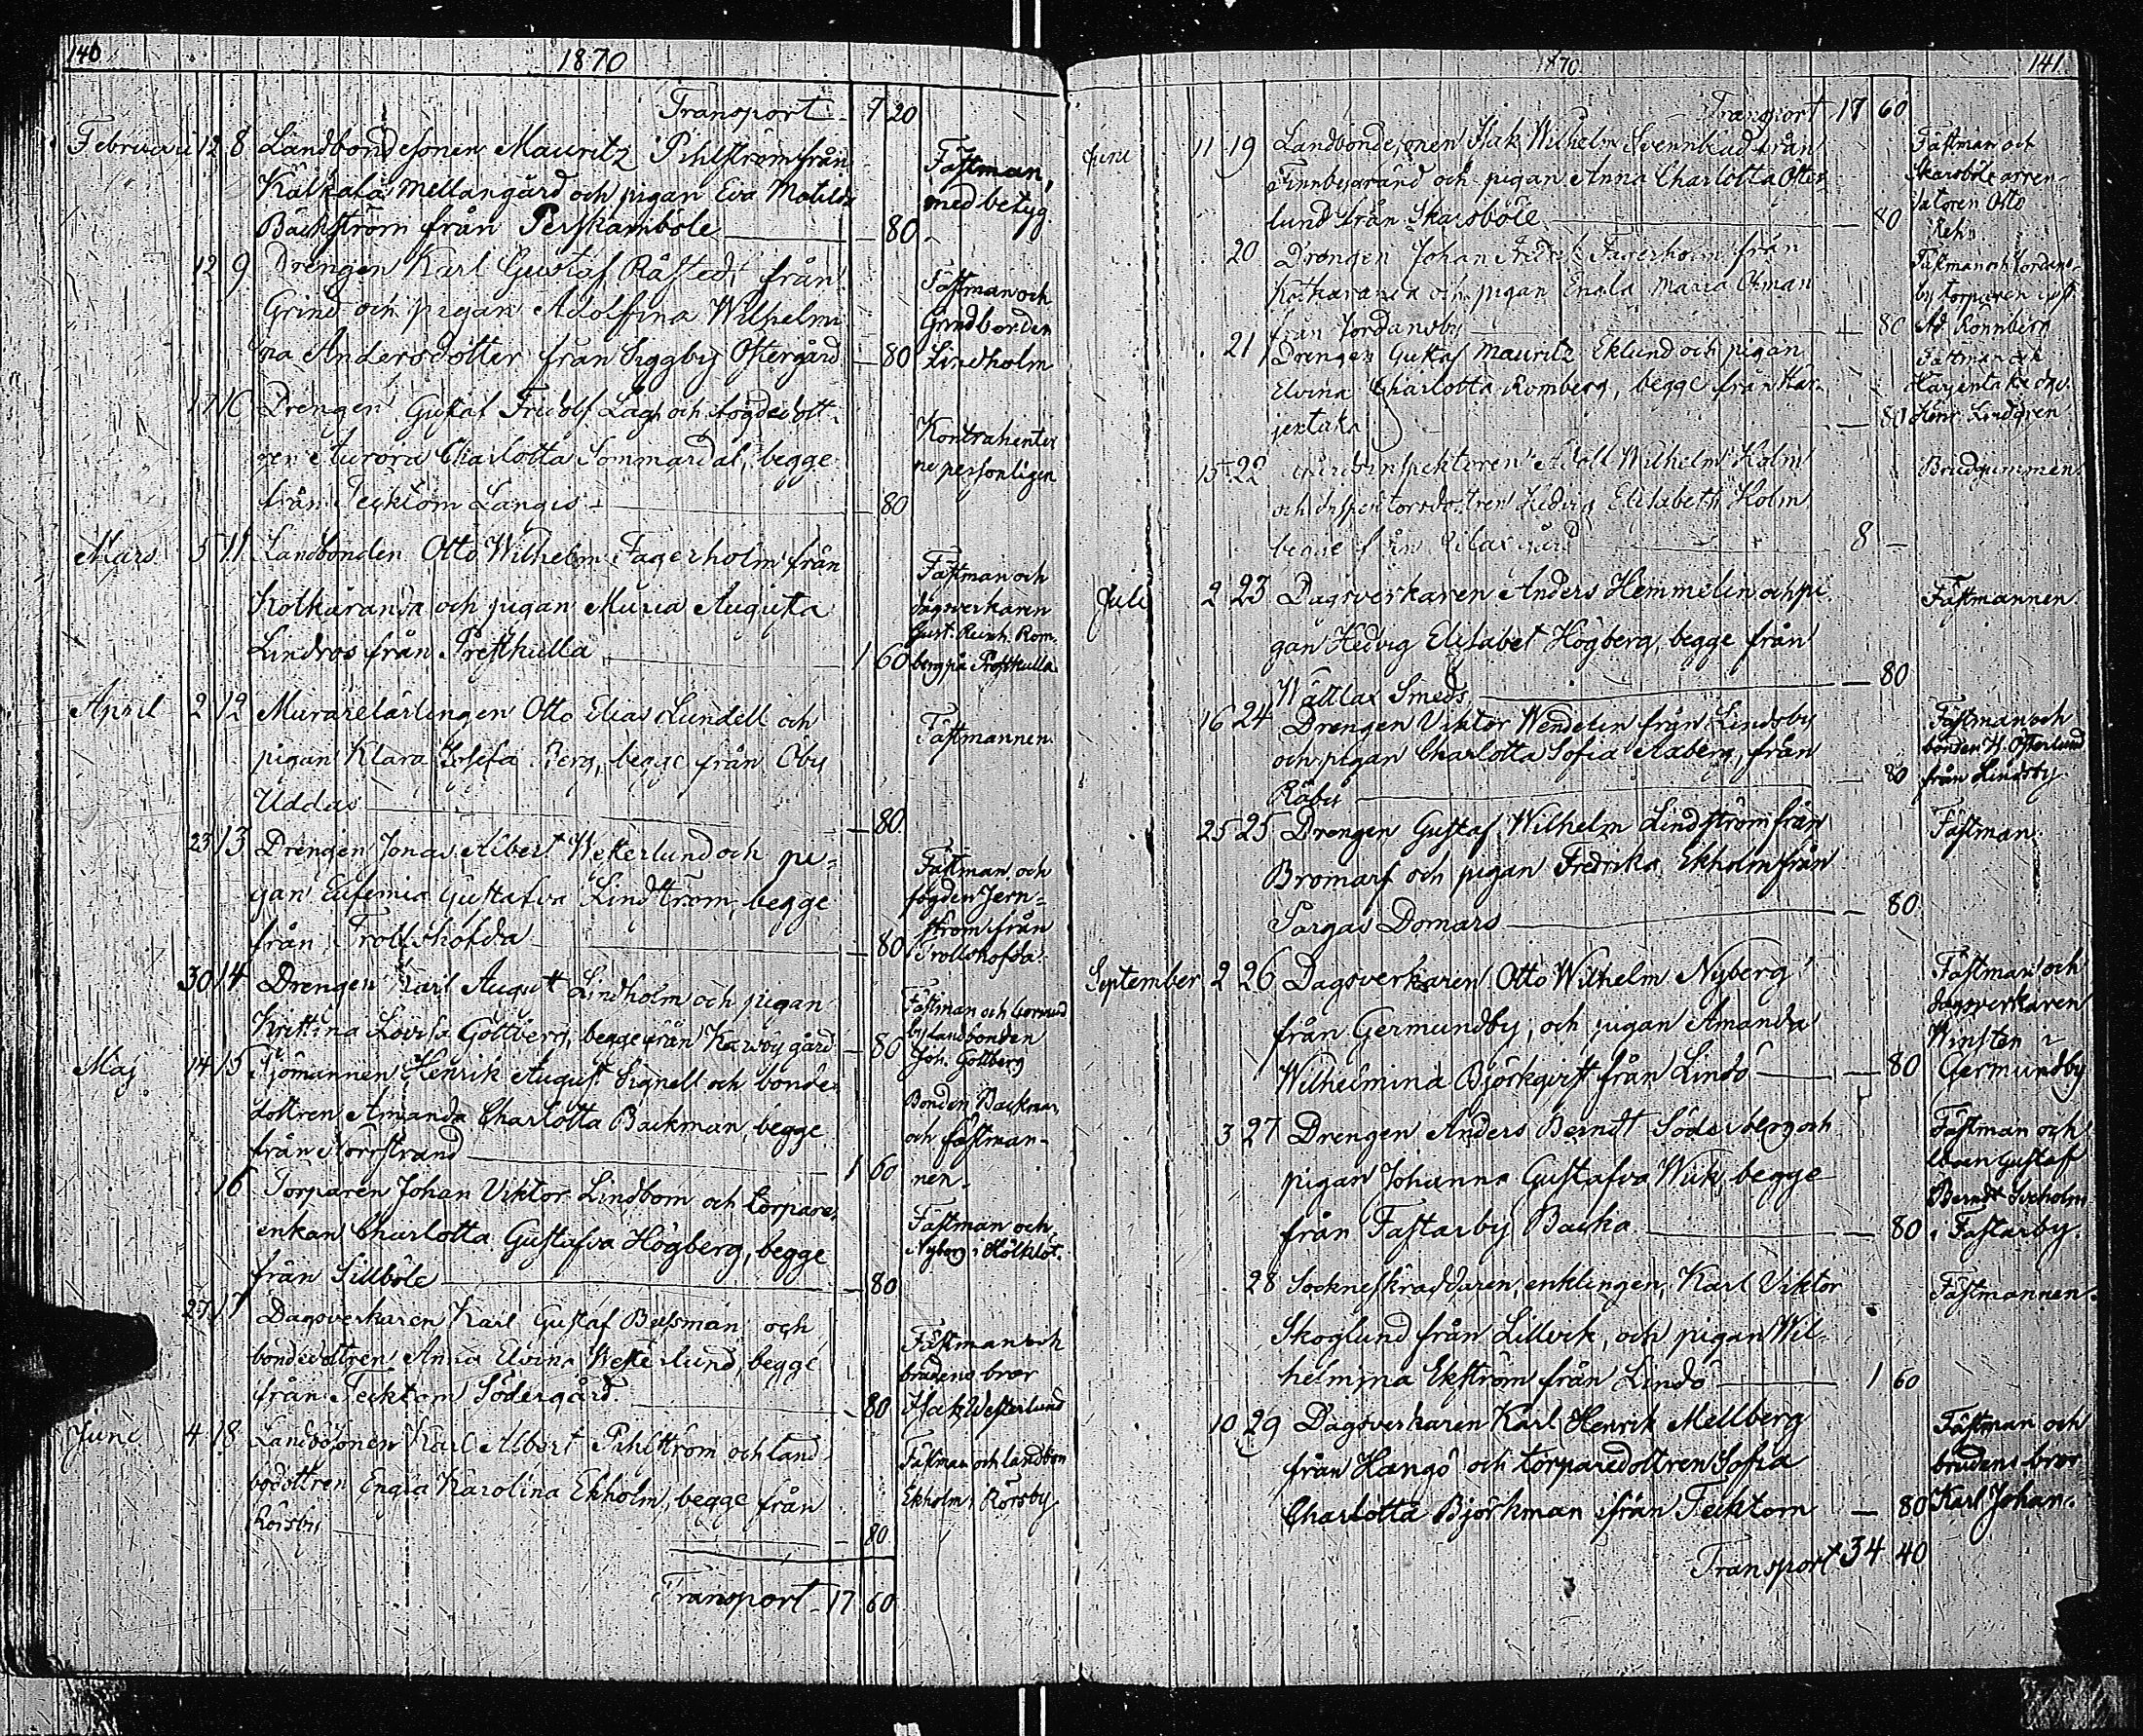 140
1870
Transport 7 20
Februari 12 8 Landbondesonen Mauritz Pihlström från
Kälkala Mellangård och pigan Eva Matilda
Bäckström från Perskamböle — 80
Fästman,
med betyg.
12 9 Drengen Karl Gustaf Råstedt från
Grind och pigan Adolfina Wilhelmi
na Andersdotter från Siggby Östergård — 80
Fästman och
Grindbonden
Lindholm
17 10 Drengen Gustaf Fridolf Lag och fogdedott-
ren Aurora Charlotta Sommardal, begge
från Tecktom Langis — 80
Kontrahenter
ne personligen
Mars 5 11 Landbonden Otto Wilhelm Fagerholm från
Kolkaranda och pigan Maria Augusta
Lindros från Prestkulla 1 60
Fästman och
dagsverkaren
Gust. Reinh. Rom-
berg på Prestkulla
April 2 12 Murarelärlingen Otto Elias Lundell och
pigan Klara Josefa Berg, begge från Öby
Uddas — 80
Fästmannen
23 13 Drengen Jonas Albert Westerlund och pi-
gan Eufemia Gustafva Lindström, begge
från Trollshofda — 80
Fästman och
fogden Jern-
ström från
Trollshofda
30 14 Drengen Karl August Lindholm och pigan
Kristina Lovisa Göttberg, begge från gård — 80
Fästman och Germund
by Landbonden
Joh. Göttberg
Maj 14 15 Sjömannen Henrik August Signell och bonde-
dottren Amanda Charlotta Backman, begge
från Norrstrand 1 60
Bonden Backman
och fästman-
nen.
16 Torparen Johan Viktor Lindbom och torpare-
enkan Charlotta Gustafva Högberg, begge
från Sillböle — 80
Fästman och
Nyberg i
27 17 Dagsverkaren Karl Gustaf Boisman och
bondedottren Anna Elvina Westerlund, begge
från Tecktom Södergård — 80
Fästman och
brudens bror
Isak Westerlund
Juni 4 18 Landbosonen Karl Albert Pihlström och land-
bodottren Engla Karolina Ekholm, begge från
Rörsby — 80
Fästman och landbon
Ekholm i Rörsby
Transport 17 60
1870
141
Transport 17 60
Juni 11 19 Landbondesonen Isak Wilhelm Svennblad från
Finnbyarand och pigan Anna Charlotta Öster-
lund från Skarsböle — 80
Fästman och
Skarsböle arren-
datoren Otto
20 Drengen Johan Fredrik Fagerholm från
Kolkaranda och pigan Engla Maria Öhman
från Jordansby — 80
Fästman och Jordans-
by torparen
Ad. Rönnberg
21 Drengen Gustaf Mauritz Eklund och pigan
Elvina Charlotta Romberg, begge från Har-
jentaka — 80
Fästman och
Harjentaka
Henr. Lindgren
15 22 Adolf Wilhelm Holm
och Inspektorsdottren Hedvig Elisabeth Holm
begge från gård 8 —
Brudgummen
Juli 2 23 Dagsverkaren Anders Hemmelin och pi-
gan Hedvig Elisabet Högberg, begge från
Wättlax Smeds — 80
Fästmannen
16 24 Drengen Viktor Wendelin från Lindsby
och pigan Charlotta Sofia Aaberg, från
Råby — 80
Fästman och
bonden H. Österlund
från Lindsby
25 25 Drengen Gustaf Wilhelm Lindström från
Bromarf och pigan Fredrika Ekholm från
Pargas Domars — 80
Fästman
September 2 26 Dagsverkaren Otto Wilhelm Nyberg
från Germundby, och pigan Amanda
Wilhelmina Björkqvist från Lindö — 80
Fästman och
dagsverkaren
Winsten i
Germundby
3 27 Drengen Anders Berndt Söderberg och
pigan Johanna Gustafva Wiik, begge
från Fastarby Backa — 80
Fästman och
Gustaf
Berndt
i Fastarby.
28 Sockneskräddaren, enklingen, Karl Viktor
Skoglund från Lillvik, och pigan Wil-
helmina Ekström från Lindö 1 60
Fästmannen
10 29 Dagsverkaren Karl Henrik Mellberg
från Hangö och torparedottren Sofia
Charlotta Björkman ifrån Tecktom — 80
Fästman och
brudens bror
Karl Johan.
Transport 34 40